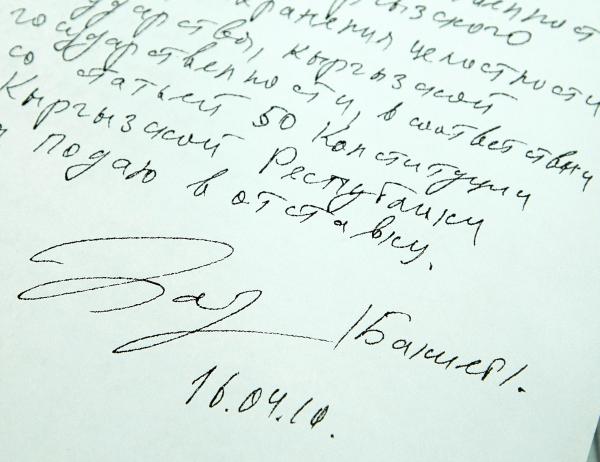 ственност
хранения целостности
государства, кыргызской
государственности, в соответствии
со статьей 50 Конституции
Кыргызской Республики
подаю в отставку.
/Бакиев/.
16.04.10.